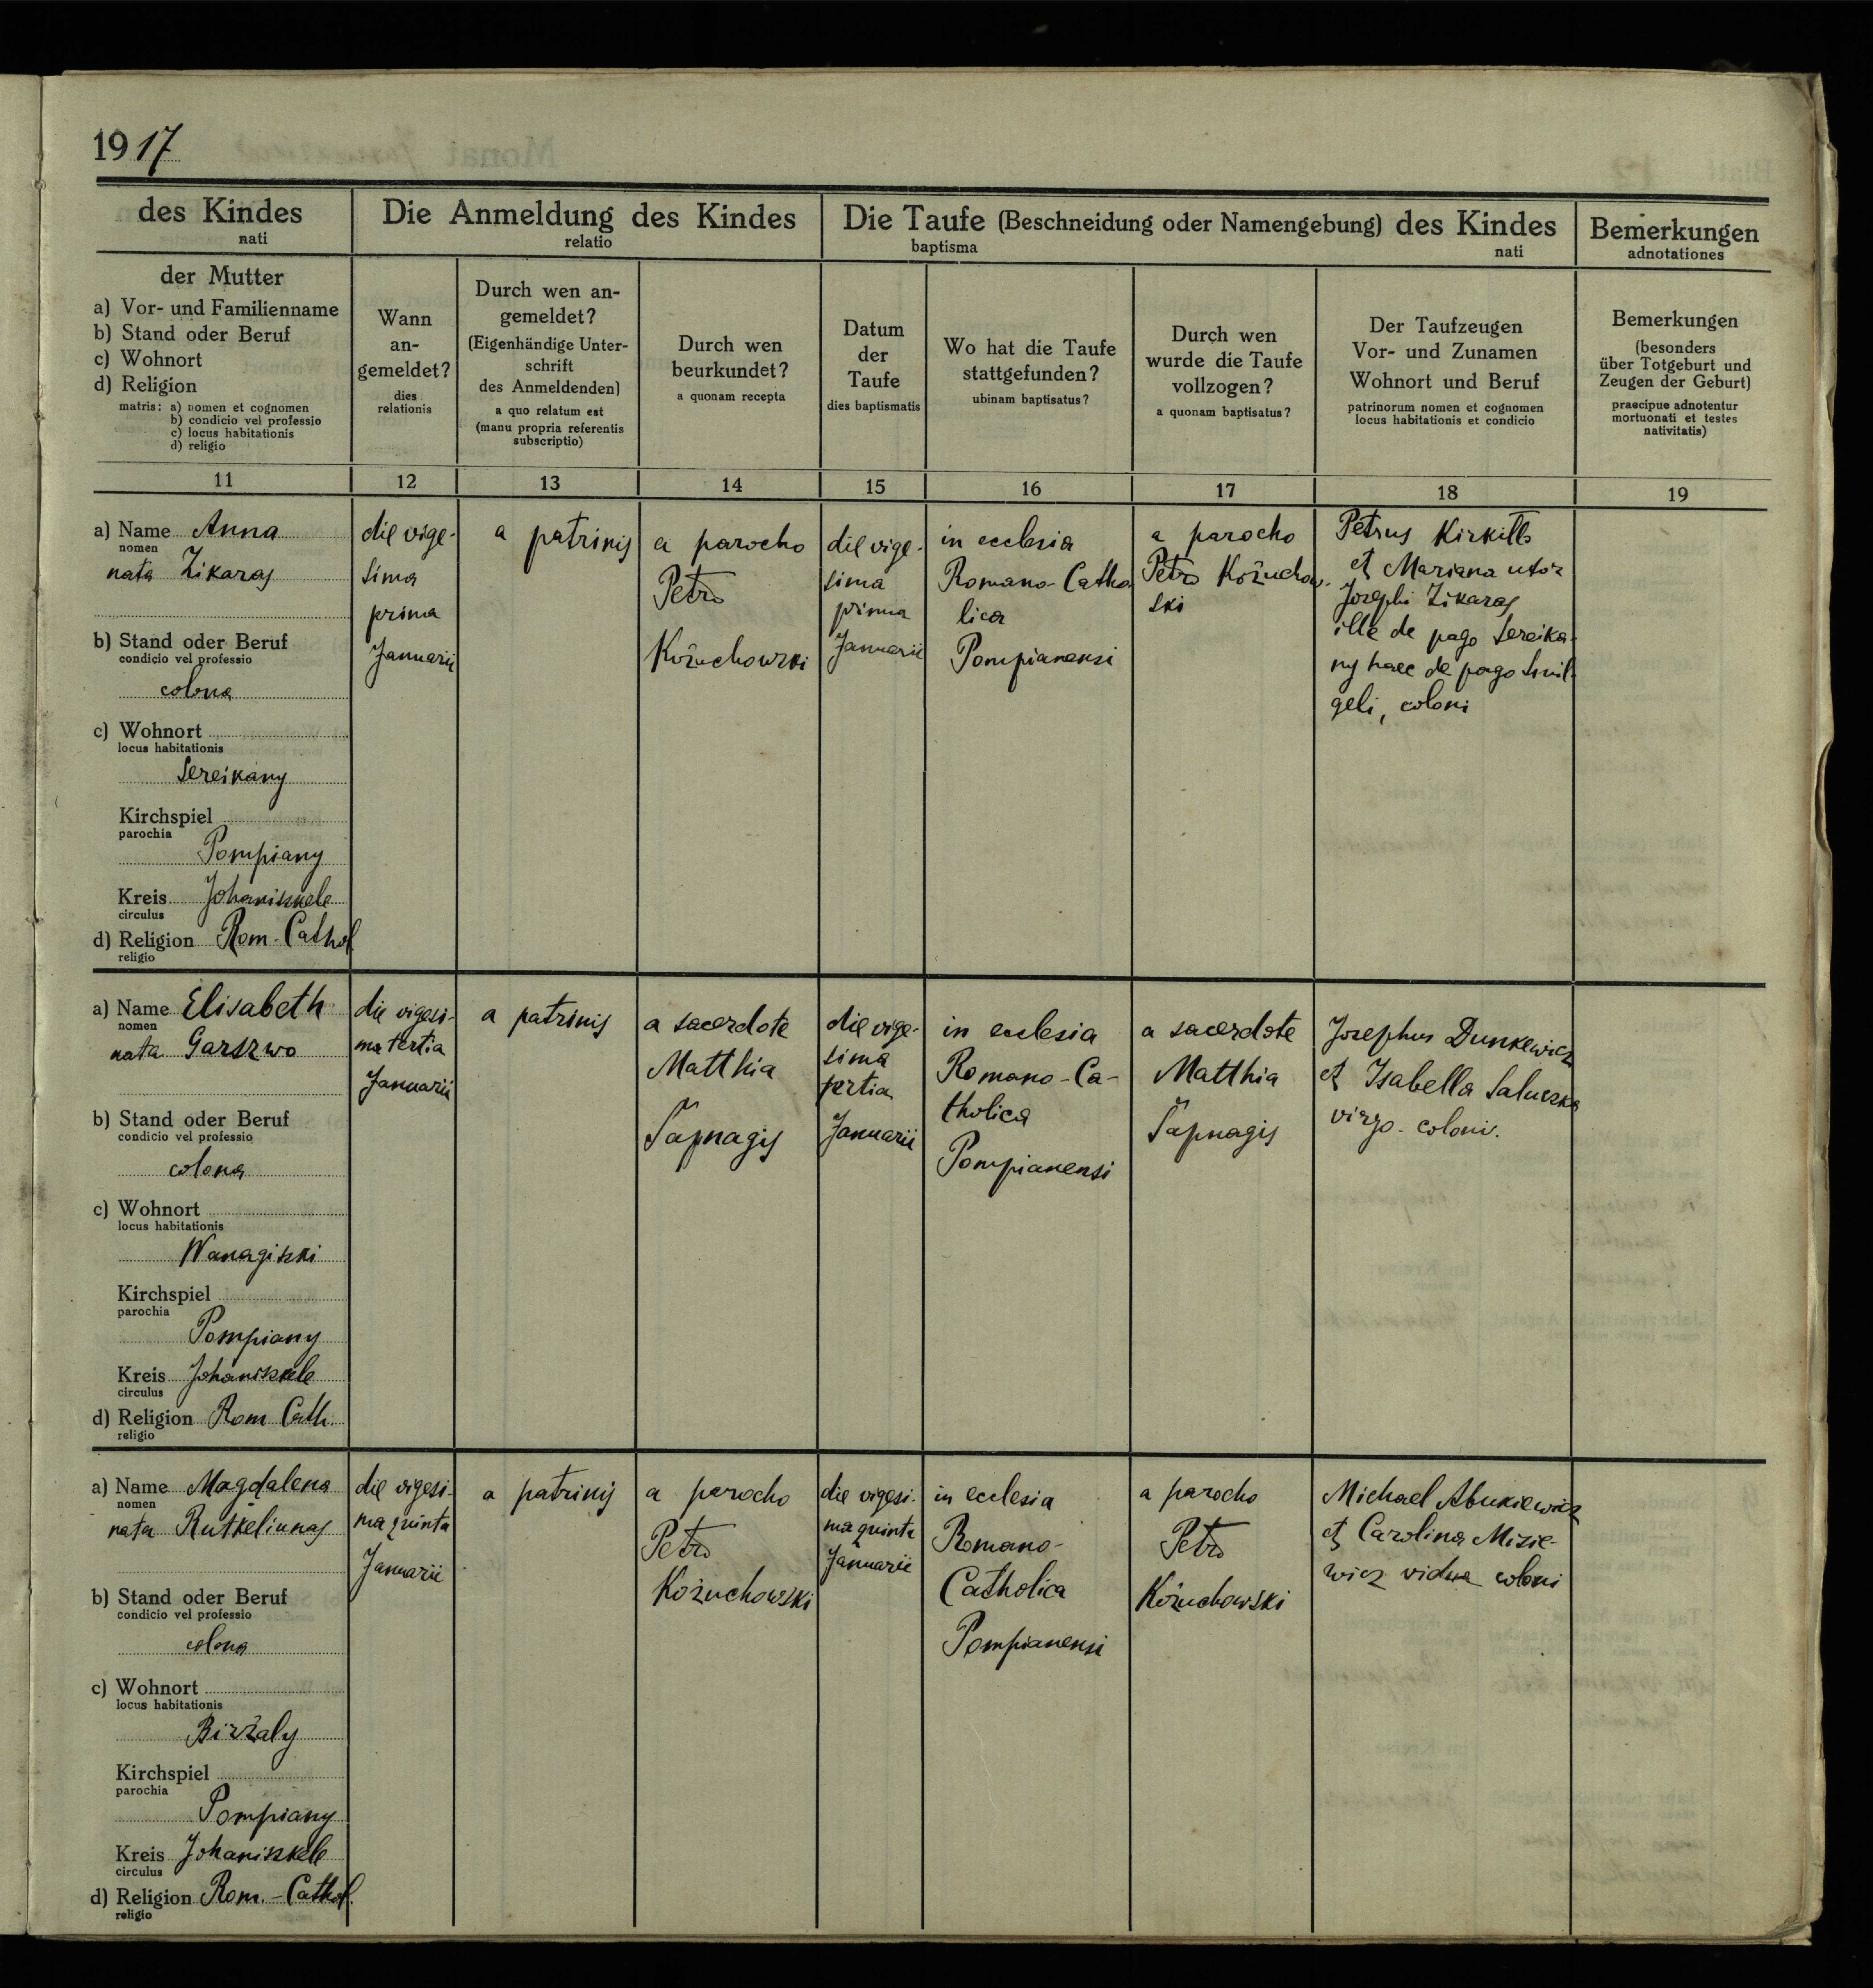 1917
des Kindes
nati
Die Anmeldung des Kindes
relatio
Die Taufe (Beschneidung oder Namengebung) des Kindes
baptisma nati
Bemerkungen
adnotationes
der Mutter
a) Vor- und Familienname
b) Stand oder Beruf
c) Wohnort
d) Religion
matris: a) nomen et cognomen
b) condicio vel professio
c) locus habitationis
d) religio
Wann
an-
gemeldet?
dies
relationis
Durch wen an-
gemeldet?
(Eigenhändige Unter-
schrift
des Anmeldenden)
a quo relatum est
(manu propria referentis
subscriptio)
Durch wen
beurkundet?
a quonam recepta
Datum
der
Taufe
dies baptismatis
Wo hat die Taufe
stattgefunden?
ubinam baptisatus?
Durch wen
wurde die Taufe
vollzogen?
a quonam baptisatus?
Der Taufzeugen
Vor- und Zunamen
Wohnort und Beruf
patrinorum nomen et cognomen
locus habitationis et condicio
Bemerkungen
(besonders
über Totgeburt und
Zeugen der Geburt)
praecipue adnotentur
mortuonati et testes
nativitatis)
11 12 13 14 15 16 17 18 19
a) Name Anna
nomen
nata Zikaras
b) Stand oder Beruf
condicio vel professio
colona
c) Wohnort
locus habitationis
Sereikany
Kirchspiel
parochia
Pompiany
Kreis Johaniszkele
circulus
d) Religion Rom.-Cathol
religio
die vige-
sima
prima
Januarii
a patrinis
a parocho
Petro
Kożuchowski
die vige-
sima
prima
Januarii
in ecclesia
Romano-Catho
lica
Pompianensi
a parocho
Petro Kożuchow-
ski
Petrus Kirkitts
et Mariana uxor
Josephi Zikaras
ille de pago Sereika-
ny haec de pago Smil-
geli, coloni
a) Name Elisabeth
nomen
nata Garszwo
b) Stand oder Beruf
condicio vel professio
colona
c) Wohnort
locus habitationis
Wanagiszki
Kirchspiel
parochia
Pompiany
Kreis Johaniszkele
circulus
d) Religion Rom Cath.
religio
die vigesi-
ma tertia
Januarii
a patrinis
a sacerdote
Matthia
Šapnagis
die vige-
sima
tertia
Januarii
in ecclesia
Romano-Ca-
tholica
Pompianensi
a sacerdote
Matthia
Šapnagis
Josephus Dunkewicz
et Isabella Saluczka
virgo. coloni.
a) Name Magdalena
nomen
nata Rutkeliunas
b) Stand oder Beruf
condicio vel professio
colona
c) Wohnort
locus habitationis
Biržaly
Kirchspiel
parochia
Pompiany
Kreis Johaniszkele
circulus
d) Religion Rom.-Cathol.
religio
die vigesi-
ma quinta
Januarii
a patrinis
a parocho
Petro
Kożuchowski
die vigesi-
ma quinta
Januarii
in ecclesia
Romano-
Catholica
Pompianensi
a parocho
Petro
Kożuchowski
Michael Abukiewicz
et Carolina Mizie-
wicz vidua coloni